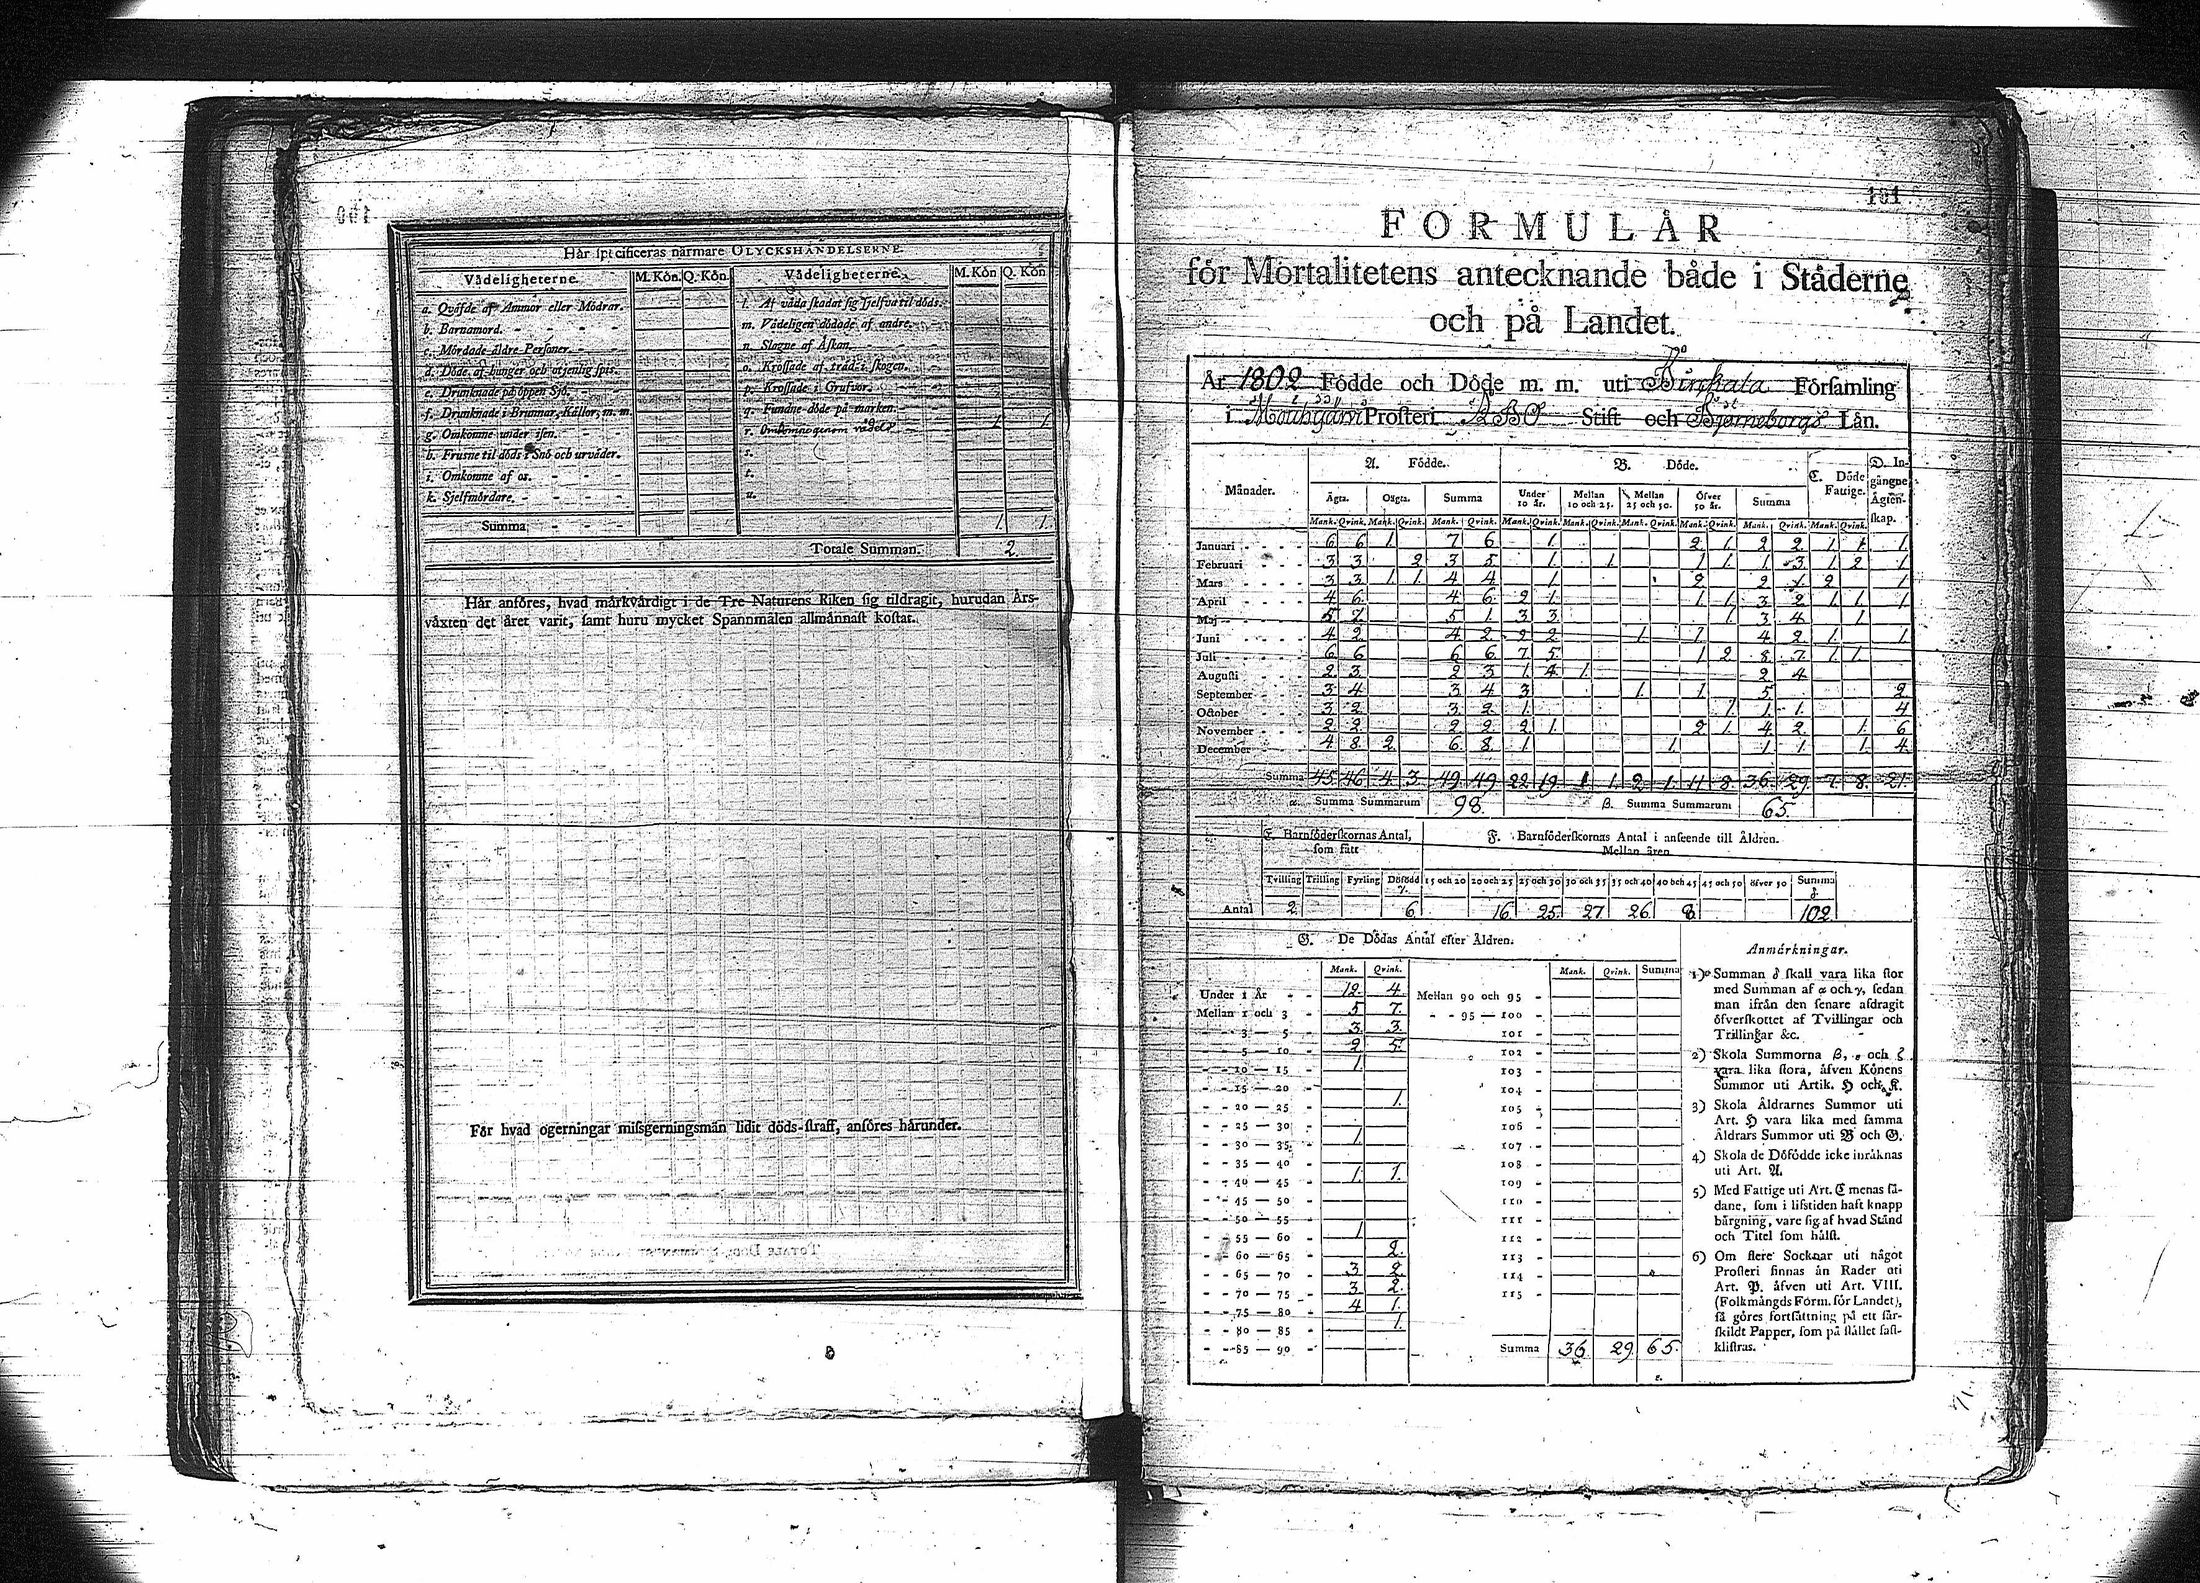 100
Här specificeras närmare OLYCKSHÄNDELSERNE.
Vådeligheterne. M. Kön. Q. Kön. Vådeligheterne. M. Kön Q. Kön
a. Qväfde af Ammor eller Mödrar. l. Af våda skadat sig sjelfva til döds.
b. Barnamord. m. Vådeligen dödade af andre.
c. Mördade äldre Personer. n. Slagne af Åskan.
d. Döde af hunger och otjenlig spis. o. Krossade af träd i skogen.
e. Drunknade på öppen Sjö. p. Krossade i Grufvor.
f. Drunknade i Brunnar, Källor, m. m. q. Fundne döde på marken.
g. Omkomne under isen. r. Omkomne genom vådeld 1 1
h. Frusne til döds i Snö och urväder. s.
i. Omkomne af os. t.
k. Sjelfmördare. u.
Summa 1. 1.
Totale Summan. 2
Här anföres, hvad märkvärdigt i de Tre Naturens Riken sig tildragit, hurudan Års-
växten det året varit, samt huru mycket Spannmålen allmännast kostat.
För hvad ogerningar missgerningsmän lidit döds-straff, anföres härunder.
101
FORMULÄR
för Mortalitetens antecknande både i Städerne
och på Landet.
År 1802 Födde och Döde m. m. uti Birkala Församling
i Mouhijärvi Prosteri ÅBO Stift och Björneborgs Län.
Månader. A. Födde. B. Döde. C. Döde Fattige. D. Ingångne Ägtenskap.
Ägta. Oägta. Summa Under 10 år. Mellan 10 och 25. Mellan 25 och 50. Öfver 50 år. Summa
Mank. Qvink. Mank. Qvink. Mank. Qvink. Mank. Qvink. Mank. Qvink. Mank. Qvink. Mank. Qvink. Mank. Qvink. Mank. Qvink.
Januari 6 6 1 7 6 1. 2. 1. 2 2 1 1 1
Februari 3 3 2 3 5 1. 1 1 1. 1 3 1 2 1
Mars 3 3 1 1 4 4 1 2 2 1 2 1
April 4 6 4 6 2 1 1 1 3 2 1 1 1
Maj 5 1 5 1 3 3 1. 3 4 1
Juni 4 2 4 2 2 2 1 1 4 2 1 1
Juli 6 6 6 6 7 5 1 2 8 7 1 1
Augusti 2 3 2 3 1 4 1. 2 4
September 3 4 3 4 3 1. 1 5 2
October 3 2 3 2 1. 1. 1 1 4
November 2 2 2 2 2 1. 2 1 4 2 1. 6
December 4 8 2 6 8 1 1. 1 1 1. 4
Summa 45 46 4 3 49 49 22 19 1 1. 2 1. 11 8 36 29 7 8 21.
α Summa Summarum 98 β. Summa Summarum 65.
E. Barnföderskornas Antal, som fått F. Barnföderskornas Antal i anseende till Åldren.
Mellan åren
Tvilling Trilling Fyrling Döfödd γ. 15 och 20 20 och 25 25 och 30 30 och 35 35 och 40 40 och 45 45 och 50 öfver 50 Summa δ
Antal 2 6 16 25 27 26 8 102
G. De Dödas Antal efter Åldren.
Mank. Qvink. Mank. Qvink. Summa
Under 1 År 12 4 Mellan 90 och 95
Mellan 1 och 3 5 7 95 — 100
3 — 5 3 3 101
5 — 10 2 5 102
10 — 15 1. 103
15 — 20 104
20 — 25 1. 105
25 — 30 106
30 — 35 1 107
35 — 40 108
40 — 45 1. 1. 109
45 — 50 110
50 — 55 111
55 — 60 1 112
60 — 65 2. 113
65 — 70 3 2 114
70 — 75 3 2. 115
75 — 80 4 1.
80 — 85 1.
85 — 90 Summa 36 29 65.
Anmärkningar.
1) Summan δ skall vara lika stor
med Summan af α och γ, sedan
man ifrån den senare afdragit
öfverskottet af Tvillingar och
Trillingar &c.
2) Skola Summorna β, ε och ζ
vara lika stora, äfven Könens
Summor uti Artik. H och K.
3) Skola Åldrarnes Summor uti
Art. H vara lika med samma
Åldrars Summor uti B och G.
4) Skola de Döfödde icke inräknas
uti Art. A.
5) Med Fattige uti Art. C menas så-
dane, som i lifstiden haft knapp
bärgning, vare sig af hvad Stånd
och Titel som hälst.
6) Om flere Socknar uti något
Prosteri finnas än Rader uti
Art. P. äfven uti Art. VIII.
(Folkmängds Form. för Landet),
så göres fortsättning på ett sär-
skildt Papper, som på stället fast-
klistras.